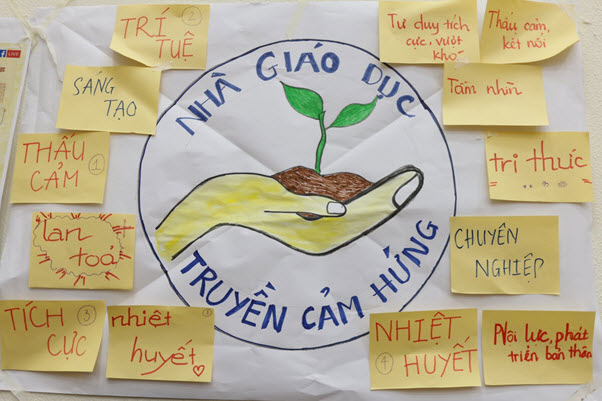 LIVE
TRÍ
②
TUỆ
SÁNG
TẠO
THẤU
CẢM
①
lan
toả
TÍCH
③
CỰC
nhiệt
huyết
NHÀ GIÁO DỤC
TRUYỀN CẢM HỨNG
Tư duy tích
cực, vượt
khó
Thấu cảm,
kết nối
Tầm nhìn
tri thức
CHUYÊN
NGHIỆP
NHIỆT
④
HUYẾT
Nội lực, phát
triển bản thân